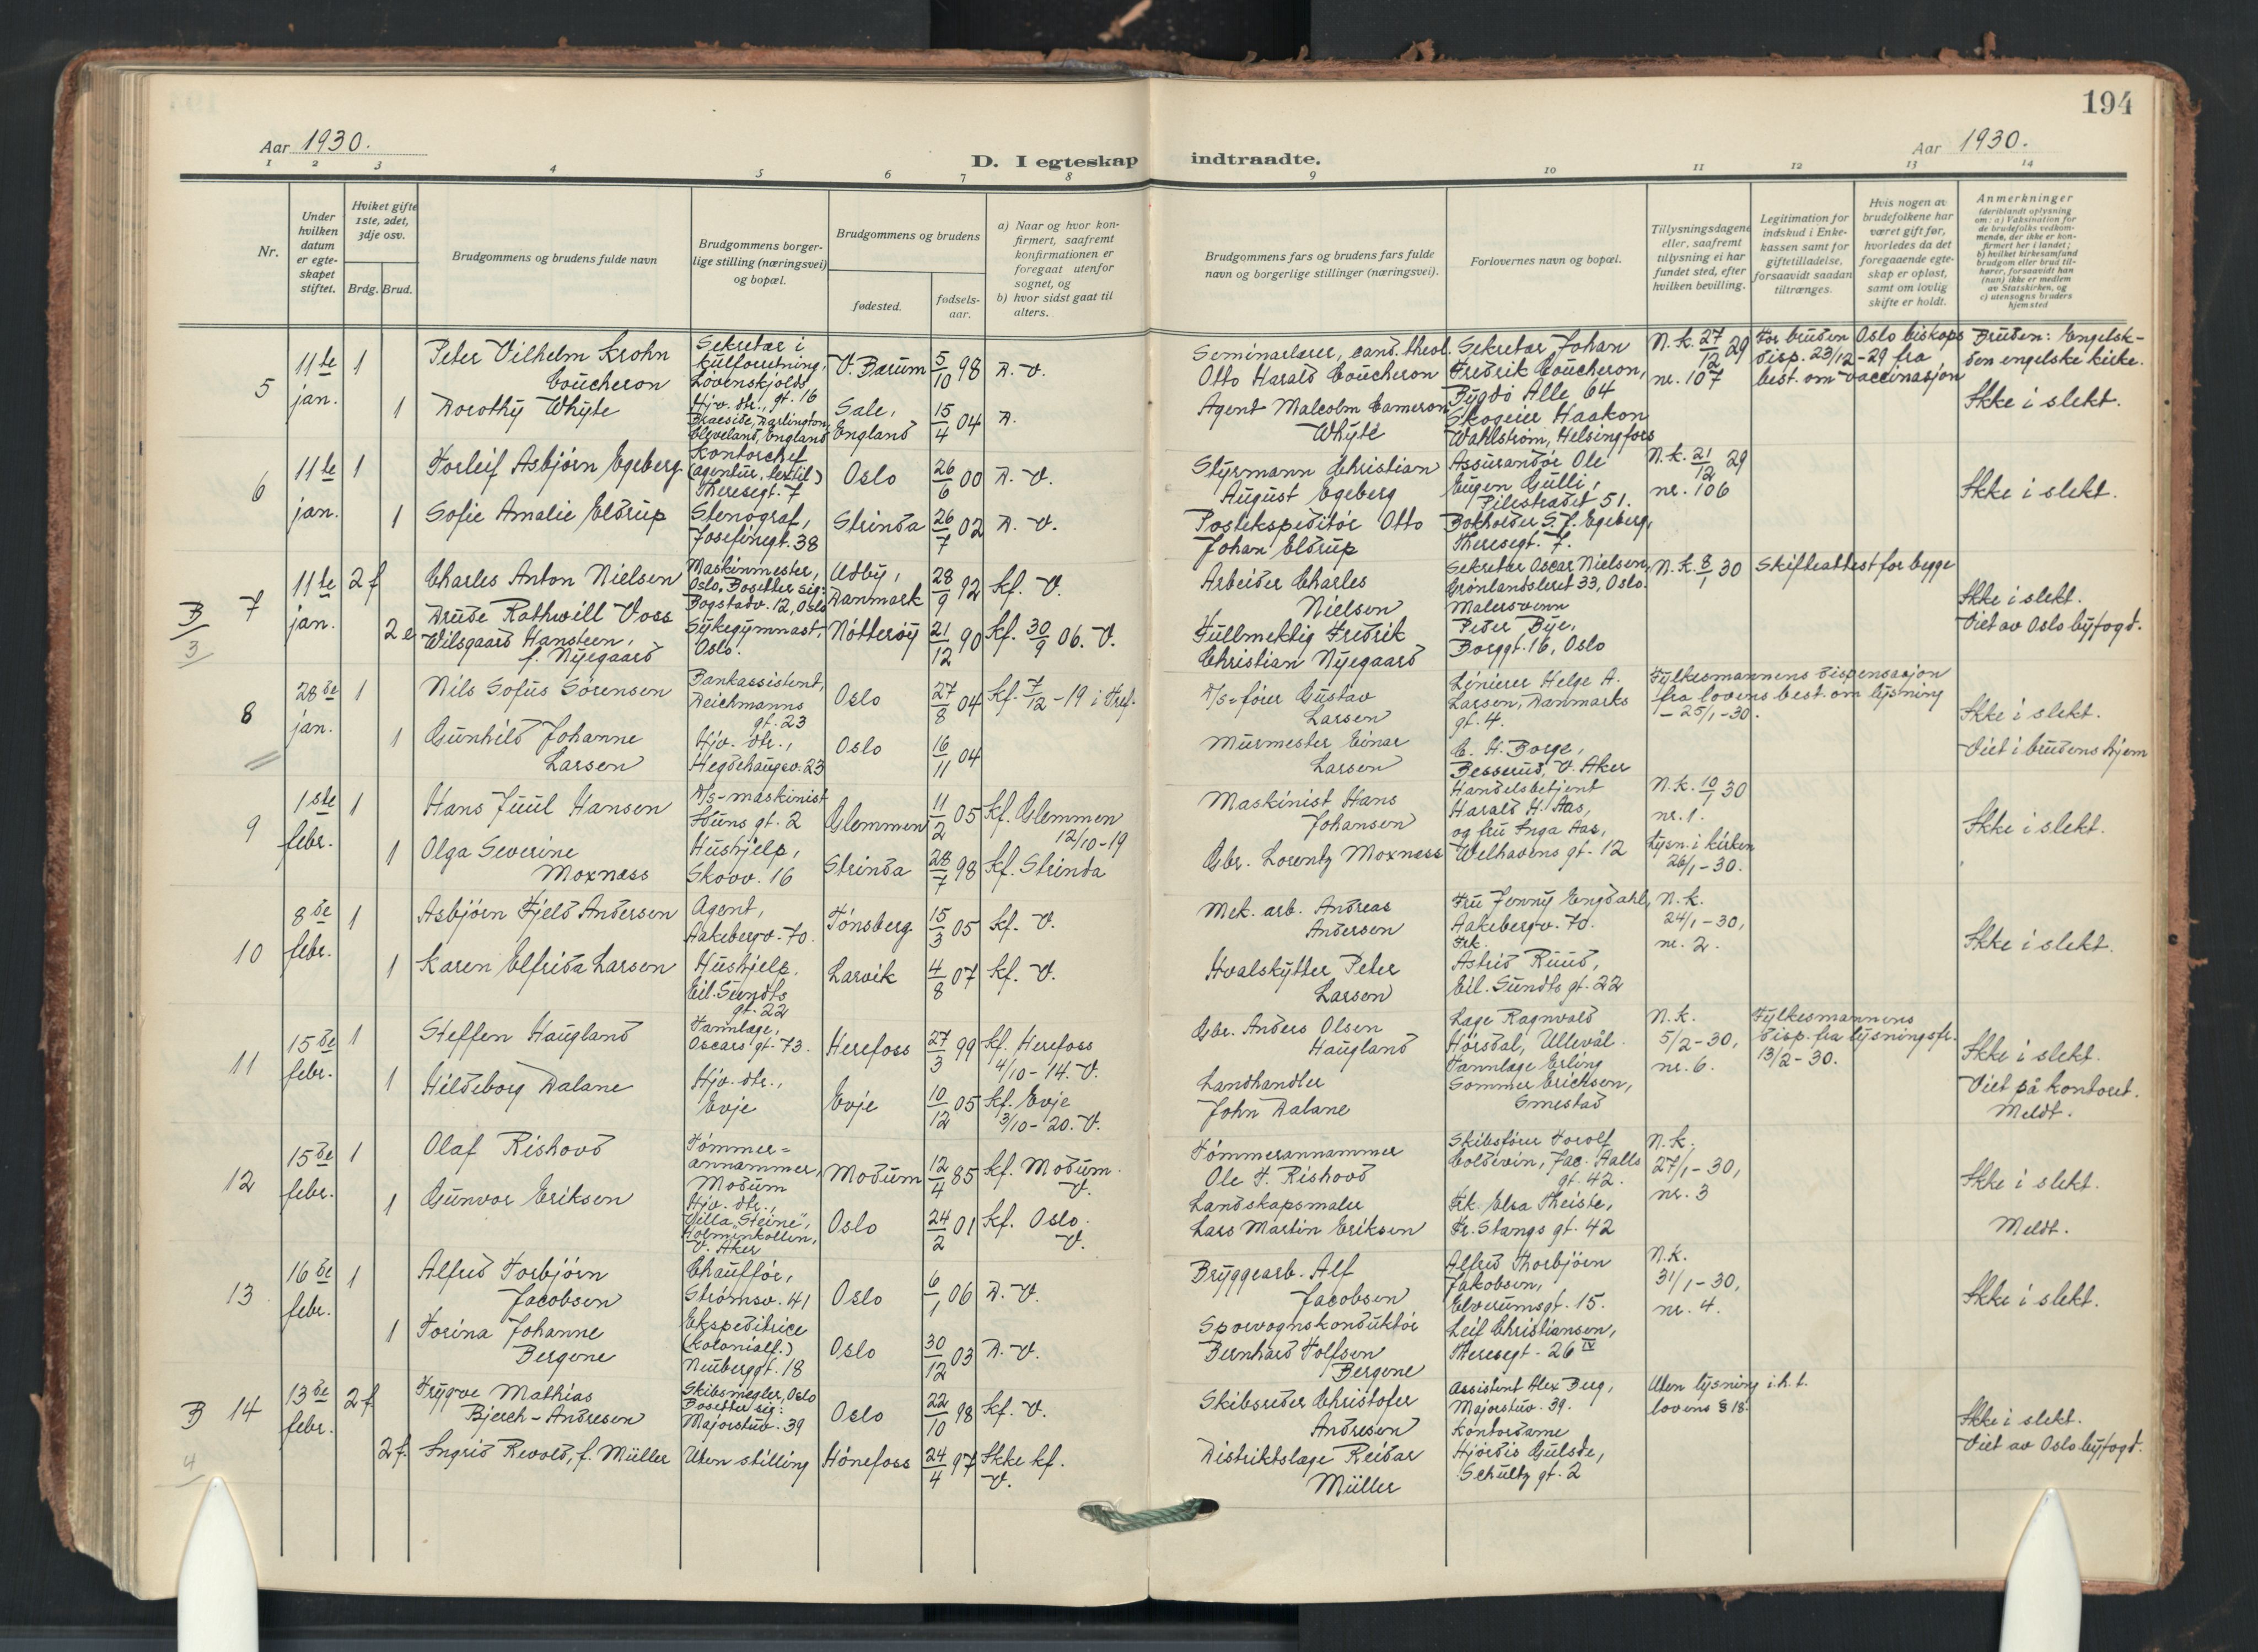 194
Aar 1930.
D. I egteskap indtraadte.
Aar 1930.
1 2 3 4 5 6 7 8 9 10 11 12 13 14
Nr.
Under hvilken datum er egte-skapet stiftet.
Hviket gifte 1ste, 2det, 3dje osv.
Brdg. Brud.
Brudgommens og brudens fulde navn
Brudgommens borger-lige stilling (næringsvei) og bopæl.
Brudgommens og brudens
fødested.
fødsels-aar.
a) Naar og hvor kon-firmert, saafremt konfirmationen er foregaat utenfor sognet, og
b) hvor sidst gaat til alters.
Brudgommens fars og brudens fars fulde navn og borgerlige stillinger (næringsvei).
Forlovernes navn og bopæl.
Tillysningsdagene eller, saafremt tillysning ei har fundet sted, efter hvilken bevilling.
Legitimation for indskud i Enke-kassen samt for giftetilladelse, forsaavidt saadan tiltrænges.
Hvis nogen av brudefolkene har været gift før, hvorledes da det foregaaende egte-skap er opløst, samt om lovlig skifte er holdt.
Anmerkninger
(deriblandt oplysning om: a) Vaksination for de brudefolks vedkom-mende, der ikke er kon-firmert her i landet; b) hvilket kirkesamfund brudgom eller brud til-hører, forsaavidt han (hun) ikke er medlem av Statskirken, og c) utensogns bruders hjemsted
5
11te jan.
1
Peter Vilhelm Krohn
Coucheron
Sekretær i
kulforretning,
Løvenskjolds
gt. 16
V. Bærum
5/10 98
D. V.
Seminarlærer, cand. theol.
Otto Harald Coucheron
Sekretær Johan
Fredrik Coucheron,
Bygdø Alle 64
N.k. 27/12 29
nr. 107
For bruden Oslo biskops
disp. 23/12-29 fra
best. om vaccinasjon
Bruden: Engelsk-
den engelske kirke.
Ikke i slekt.
1
Dorothy Whyte
Hjv. dtr.,
Braeside, Darlington,
Cleveland, England
Sale,
England
15/4 04
D.
Agent Malcolm Cameron
Whyte
Skogeier Haakon
Wahlstrøm, Helsingfors
6
11te jan.
1
Torleif Asbjørn Egeberg
Kontorchef
(agentur, textil)
Theresegt. 7
Oslo
26/6 00
D. V.
Styrmann Christian
August Egeberg
Assurandør Ole
Eugen Gulli,
Pilestrædet 51.
N.k. 21/12 29
nr. 106
Ikke i slekt.
1
Sofie Amalie Eldrup
Stenograf,
Josefinegt. 38
Strinda
26/7 02
D. V.
Postekspeditør Otto
Johan Eldrup
Bokholder S. J. Egeberg,
Theresegt. 7.
B/3
7
11te jan.
2 f
Charles Anton Nielsen
Maskinmester,
Oslo, Bosetter sig:
Bogstadv. 12, Oslo
Udby,
Danmark
28/9 92
Kf. V.
Arbeider Charles
Nielsen
Sekretær Oscar Nielsen,
Grønlandsleret 33, Oslo.
N.k. 8/1 30
Skifteattest for begge
Ikke i slekt.
Viet av Oslo byfogd.
3
2 e
Drude Rathwill Voss
Wilsgaard Hansteen,
f. Nyegaard
Sykegymnast,
Oslo.
Nøtterøy
21/12 90
Kf. 30/9 06. V.
Fullmektig Fredrik
Christian Nyegaard
Malersvenn
Peder Bye,
Borggt. 16, Oslo
8
28de jan.
1
Nils Sofus Sørensen
Bankassistent,
Deichmanns
gt. 23
Oslo
27/8 04
Kf. 7/12-19 i Tref.
D/s-fører Gustav
Larsen
Linierer Helge A.
Larsen, Danmarks
gt. 4.
Fylkesmannens dispensasjon
fra lovens best. om lysning
- 25/1-30.
Ikke i slekt.
Viet i brudens hjem
1
Gunhild Johanne
Larsen
Hjv. dtr.,
Hegdehaugsv. 23
Oslo
16/11 04
Murmester Einar
Larsen
C. H. Borge,
Besserud, V. Aker
9
1ste febr.
1
Hans Juul Hansen
D/s-maskinist
Iduns gt. 2
Glemmen
11/2 05
Kf. Glemmen
12/10-19
Maskinist Hans
Johansen
Handelsbetjent
Harald H. Aas,
og fru Inga Aas,
Welhavens gt. 12
N.k. 10/1 30
nr. 1.
Lysn. i kirken
26/1-30.
Ikke i slekt.
1
Olga Severine
Moxness
Hushjelp,
Skovv. 16
Strinda
28/7 98
Kf. Strinda
Gbr. Lorentz Moxness
10
8de febr.
1
Asbjørn Fjeld Andersen
Agent,
Aakebergv. 70.
Tønsberg
15/3 05
Kf. V.
Mek. arb. Andreas
Andersen
Fru Jenny Engdahl,
Aakebergv. 70.
N.k.
24/1-30,
nr. 2.
Ikke i slekt.
1
Karen Elfrida Larsen
Hushjelp,
Eil. Sundts
gt. 22
Larvik
4/8 07
Kf. V.
Hvalskytter Peter
Larsen
Frk.
Astrid Ruud,
Eil. Sundts gt. 22
11
15de febr.
1
Steffen Haugland
Tannlæge,
Oscars gt. 73.
Herefoss
27/3 99
Kf. Herefoss
4/10-14. V.
Gbr. Anders Olsen
Haugland
Læge Ragnvald
Hørsdal, Ullevål.
N.k.
5/2-30,
nr. 6.
Fylkesmannens
disp. fra lysningsfr.
13/2-30.
Ikke i slekt.
Viet på kontoret.
Meldt.
1
Hildeborg Dalane
Hjv. dtr.,
Evje
Evje
10/12 05
Kf. Evje
3/10-20. V.
Landhandler
John Dalane
Tannlæge Erling
Sommer Erichsen,
Smestad
12
15de febr.
1
Olaf Rishovd
Tømmer=
annammer,
Modum
Modum
12/4 85
Kf. Modum.
V.
Tømmerannammer
Ole T. Rishovd
Skibsfører Torolf
Coldevin, Jac. Aalls
gt. 42.
N.k.
27/1-30,
nr. 3
Ikke i slekt.
Meldt.
1
Gunvor Eriksen
Hjv. dtr.,
Villa „Steine",
Holmenkollen,
V. Aker
Oslo
24/2 01
Kf. Oslo.
V.
Landskapsmaler
Lars Martin Eriksen
Frk. Elsa Theiste,
Fr. Stangs gt. 42
13
16de febr.
1
Alfred Torbjørn
Jacobsen
Chauffør,
Strømsv. 41
Oslo
6/1 06
D. V.
Bryggearb. Alf
Jacobsen
Alfred Thorbjørn
Jakobsen,
Elverumsgt. 15.
N.k.
31/1-30,
nr. 4.
Ikke i slekt.
1
Torina Johanne
Bergene
Ekspeditrice
(Kolonialf.)
Neuberggt. 18
Oslo
30/12 03
D. V.
Sporvognskonduktør
Bernhard Tolfsen
Bergene
Leif Christiansen,
Theresegt. 26 IV
B
14
13de febr.
2 f
Trygve Mathias
Bjerch-Andresen
Skibsmegler, Oslo
Bosetter sig:
Majorstuv. 39
Oslo
22/10 98
Kf. V.
Skibsreder Christofer
Andresen
Assistent Alex Berg,
Majorstuv. 39.
Uten lysning i.h.t.
lovens § 18.
Ikke i slekt.
Viet av Oslo byfogd.
4
2 f.
Ingrid Revold, f. Müller
Uten stilling
Hønefoss
24/4 97
Ikke kf.
V.
Distriktslæge Reidar
Müller
Kontordame
Hjørdis Gulsde,
Schultz gt. 2